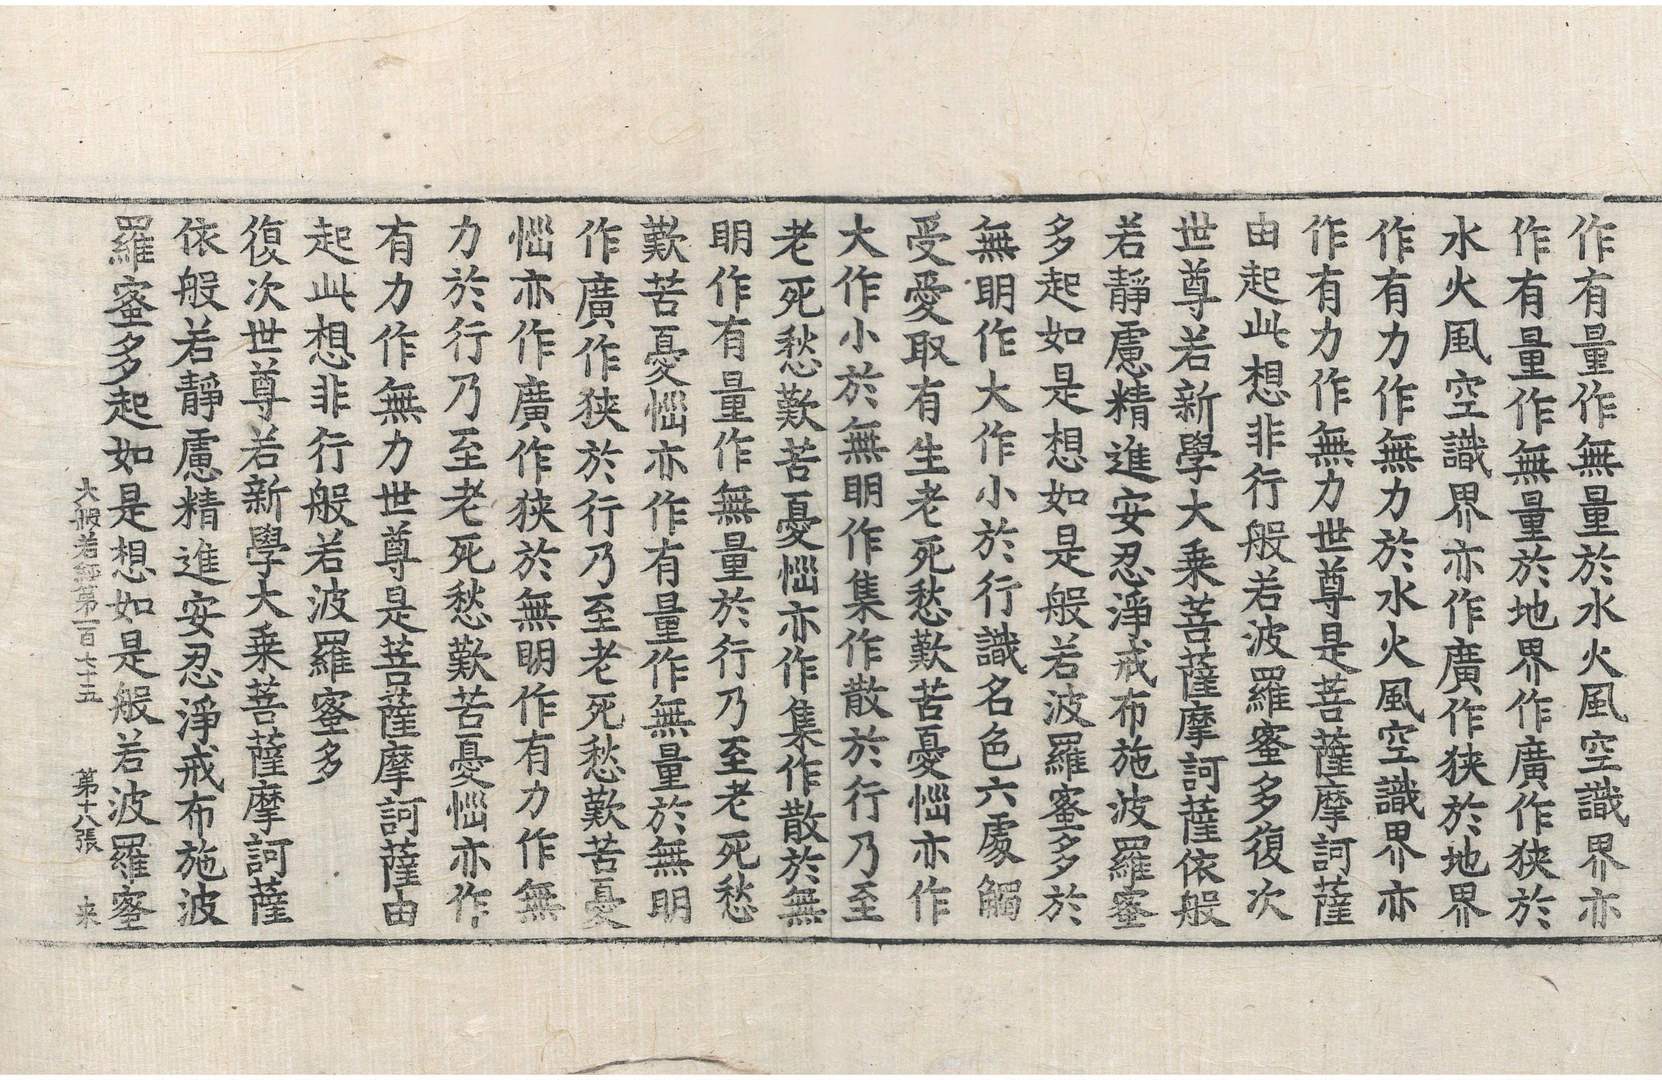 作有量作無量於水火風空識界亦
作有量作無量於地界作廣作狹於
水火風空識界亦作廣作狹於地界
作有力作無力於水火風空識界亦
作有力作無力世尊是菩薩摩訶薩
由起此想非行般若波羅蜜多復次
世尊若新學大乘菩薩摩訶薩依般
若靜慮精進安忍淨戒布施波羅蜜
多起如是想如是般若波羅蜜多於
無明作大作小於行識名色六處觸
受愛取有生老死愁歎苦憂惱亦作
大作小於無明作集作散於行乃至
老死愁歎苦憂惱亦作集作散於無
明作有量作無量於行乃至老死愁
歎苦憂惱亦作有量作無量於無明
作廣作狹於行乃至老死愁歎苦憂
惱亦作廣作狹於無明作有力作無
力於行乃至老死愁歎苦憂惱亦作
有力作無力世尊是菩薩摩訶薩由
起此想非行般若波羅蜜多
復次世尊若新學大乘菩薩摩訶薩
依般若靜慮精進安忍淨戒布施波
羅蜜多起如是想如是般若波羅蜜
大般若經第一百七十五 第十八張 来